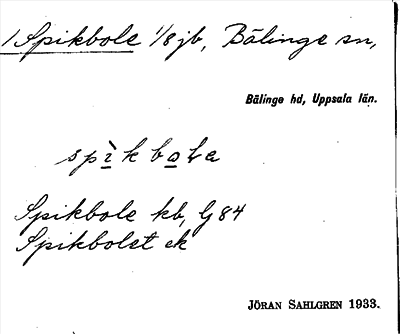 1 Spikbole 1/8 jb, Bälinge sn,
Bälinge hd, Uppsala län.
spìkbola
Spikbole kb, G 84
Spikbolet ek
JÖRAN SAHLGREN 1933.